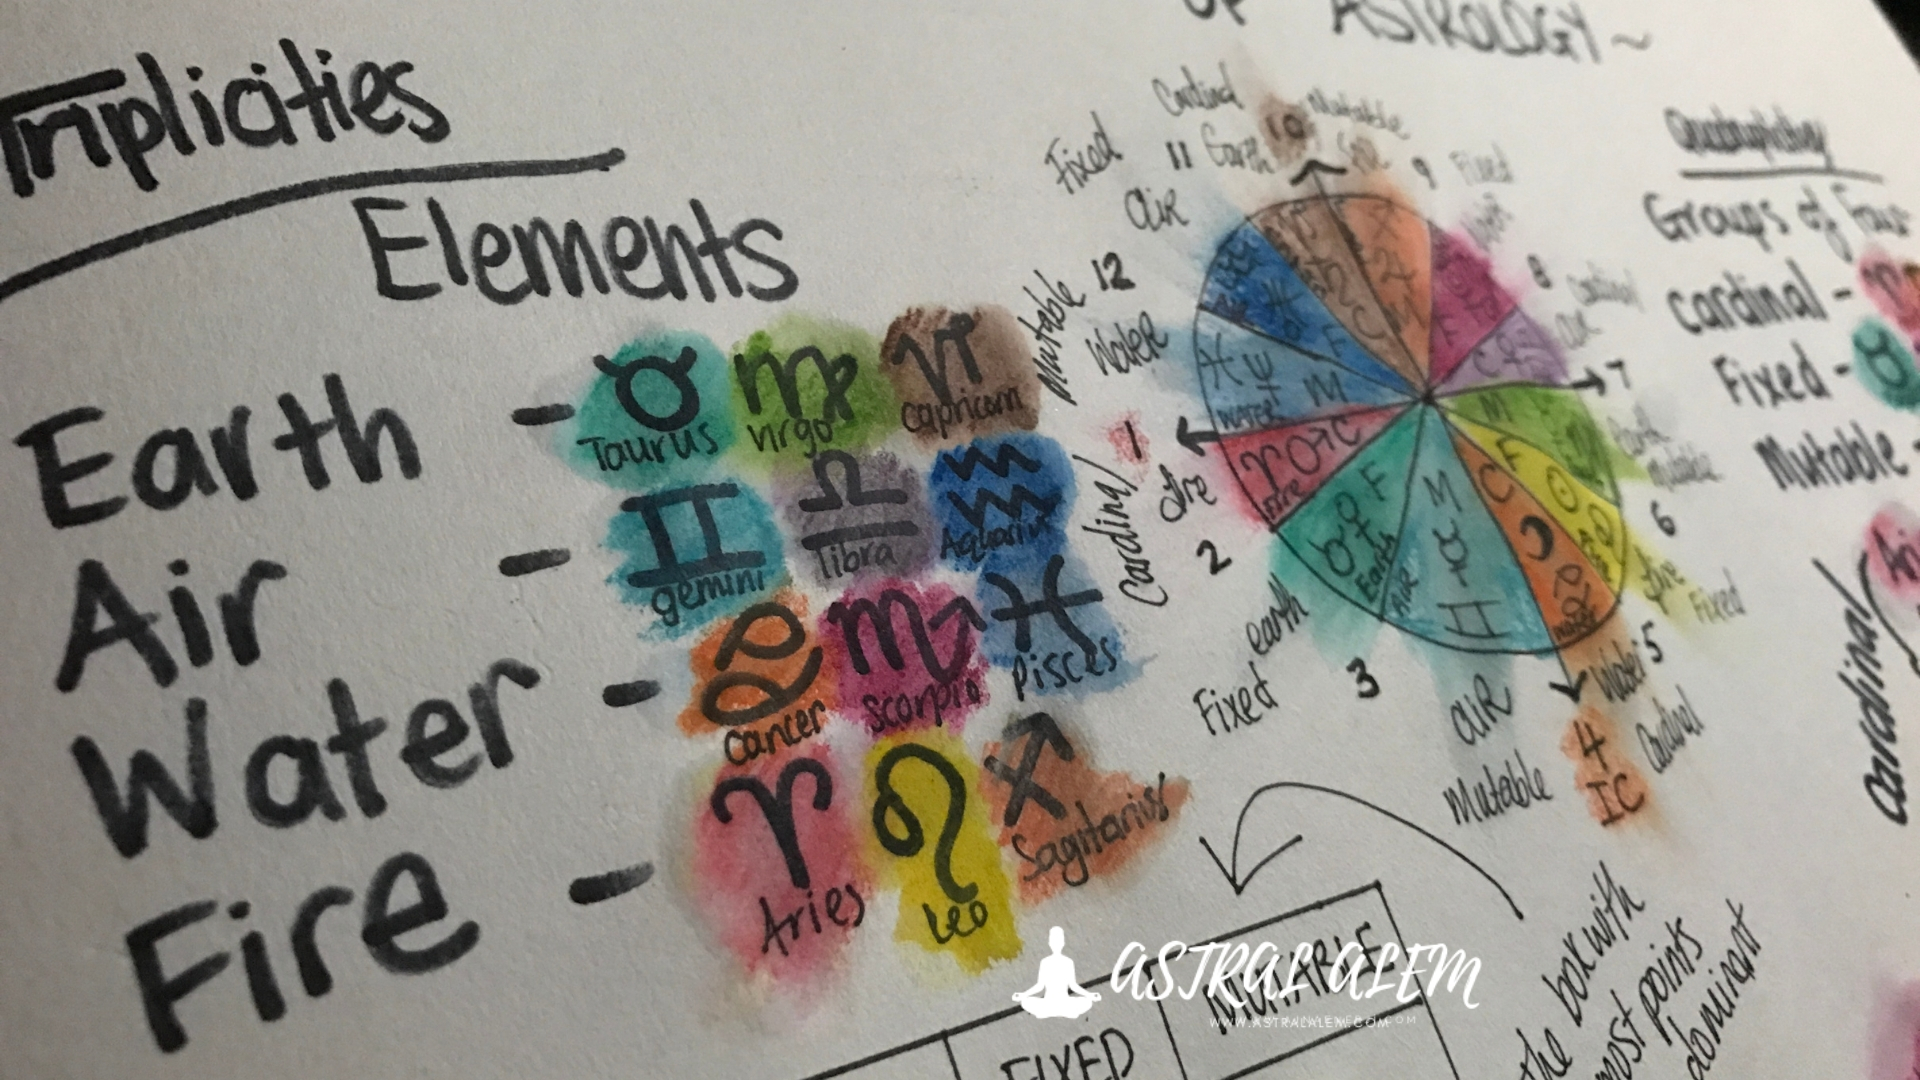 OF ASTROLOGY ~
Triplicities
Elements
Earth - Taurus Virgo Capricorn
Air - gemini libra Aquarius
Water - Cancer Scorpio Pisces
Fire - Aries Leo Sagitarius
Cardinal Earth 10
Mutable
9 Fixed
Fixed Air 11
8 Cardinal air
Mutable Water 12
7
Cardinal fire 1
Earth Mutable
6
Fixed earth 2
fire Fixed
5
3
Water Cardinal
4
IC
aiR
Mutable
WATER M
FIRE C
Earth F
AIR M
C
F
M
Groups of Four
Cardinal -
Fixed -
Mutable -
Cardinal
MUTABLE
FIXED
the box with
most points
dominant
ASTRAL ALEM
WWW.ASTRALALEM.COM